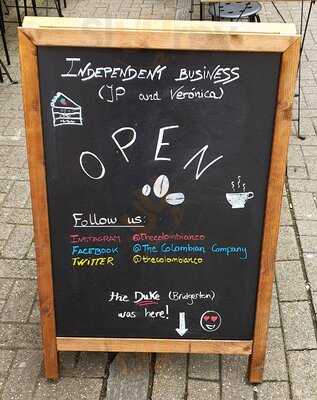 INDEPENDENT BUSINESS
(JP and Verónica)
OPEN
Follow us:
INSTAGRAM @thecolombianco
FACEBOOK @The Colombian Company
TWITTER @thecolombianco
the DUKE (Bridgerton)
was here!